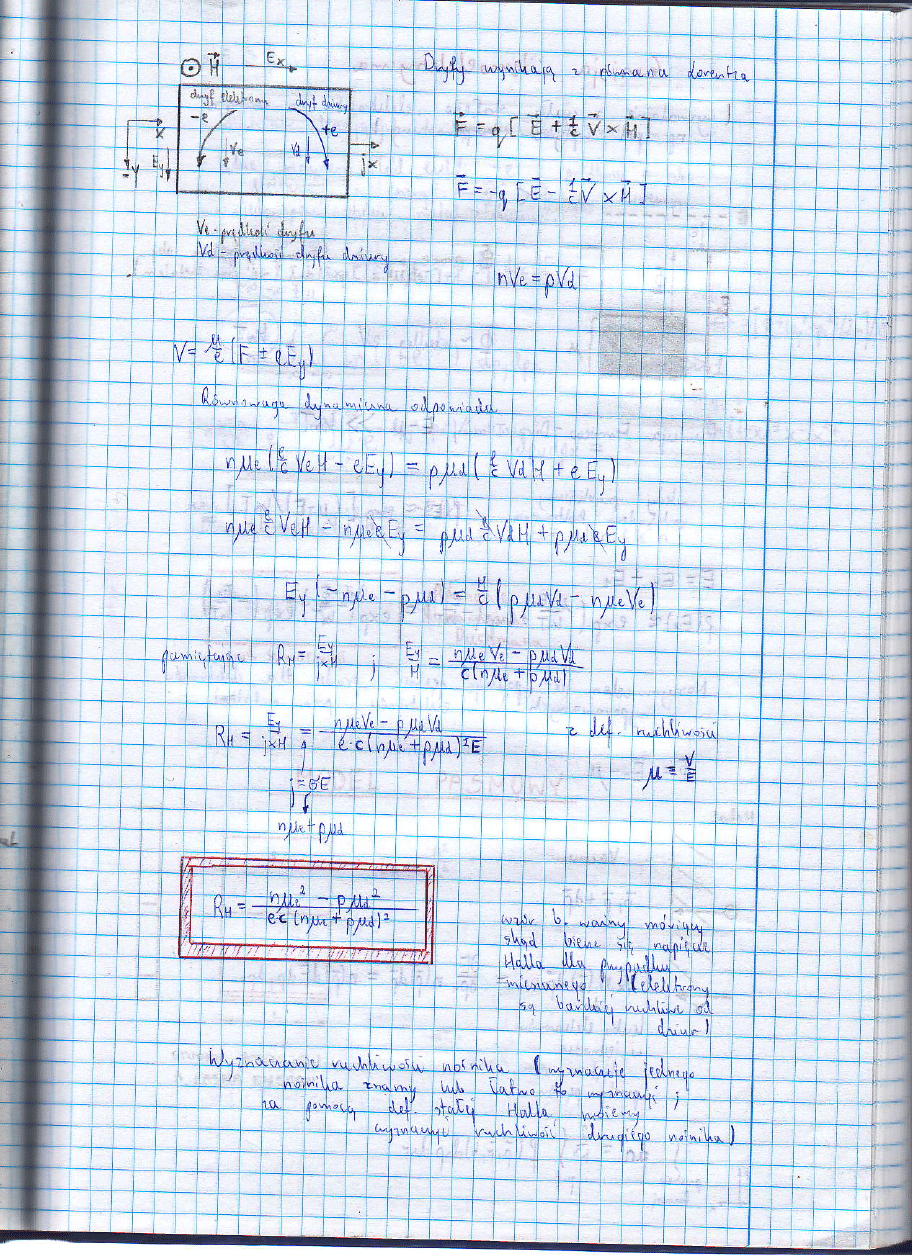 H⃗ Ex
Dryfy wynikają z równania Lorentza
dryf elektronu dryf dziury
-e +e
x
-y Ey Ve Vd jx
F⃗ = q [ E⃗ + 1/c V⃗ × H⃗ ]
F⃗ = -q [ E⃗ - 1/c V⃗ × H⃗ ]
Ve - prędkość dryfu
Vd - prędkość dryfu dziury
nVe = pVd
V = μ/e (F ± eEy)
Równowaga dynamiczna odpowiada
nμe (e/c VeH - eEy) = pμd (e/c VdH + eEy)
nμe e/c VeH - nμe eEy = pμd e/c VdH + pμd eEy
Ey (-nμe - pμd) = H/c (pμdVd - nμeVe)
pamiętając RH = Ey/jxH j Ey/H = nμeVe - pμdVd / c(nμe + pμd)
RH = Ey/jxH = - nμeVe - pμdVd / e·c(nμe + pμd)²E z def. ruchliwości
μ = V/E
j = σE
nμe + pμd
RH = nμe² - pμd² / e·c (nμe + pμd)²
wzór b. ważny mówiący
skąd bierze się napięcie
Halla dla przypadku
mieszanego (elektrony
są bardziej ruchliwe od
dziur)
Wyznaczanie ruchliwości nośnika (jednego
nośnika znamy lub łatwo wyznaczyć j
za pomocą def. stałej Halla możemy
wyznaczyć ruchliwość drugiego nośnika)